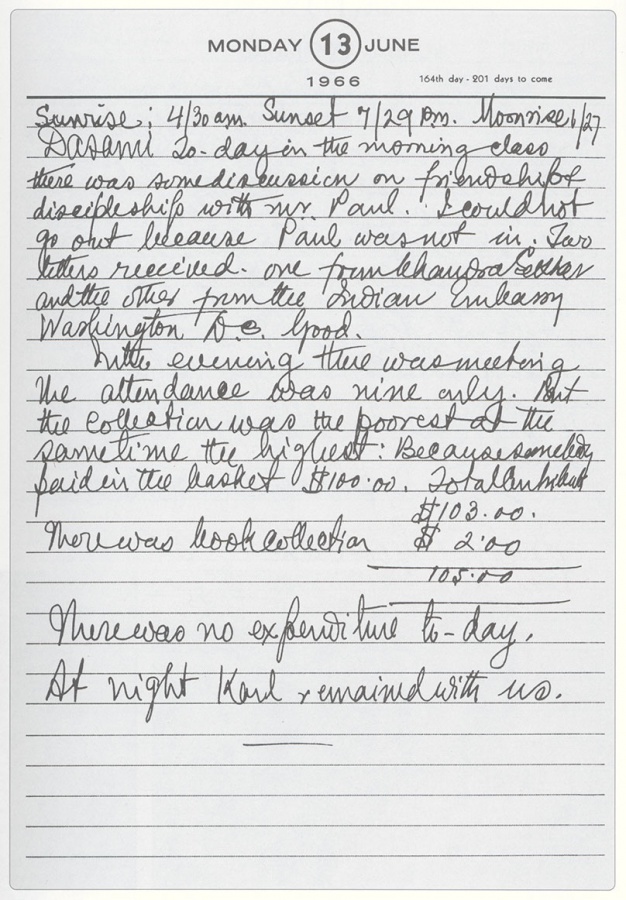 MONDAY 13 JUNE
1966
164th day - 201 days to come
Sunrise; 4/30 am. Sunset 7/29 pm. Moonrise 1/27
DASAMI To-day in the morning class
there was some discussion on friendship &
discipleship with mr. Paul. I could not
go out because Paul was not in. Two
letters received. one from Chandra Sekhar
and the other from the Indian Embassy
Washington D.C. Good.
In the evening there was meeting
The attendance was nine only. But
the collection was the poorest at the
sametime the highest: Because somebody
paid in the basket $100.00. Total
$103.00.
There was book collection $ 2.00
105.00
There was no expenditure to-day.
At night Karl remained with us.